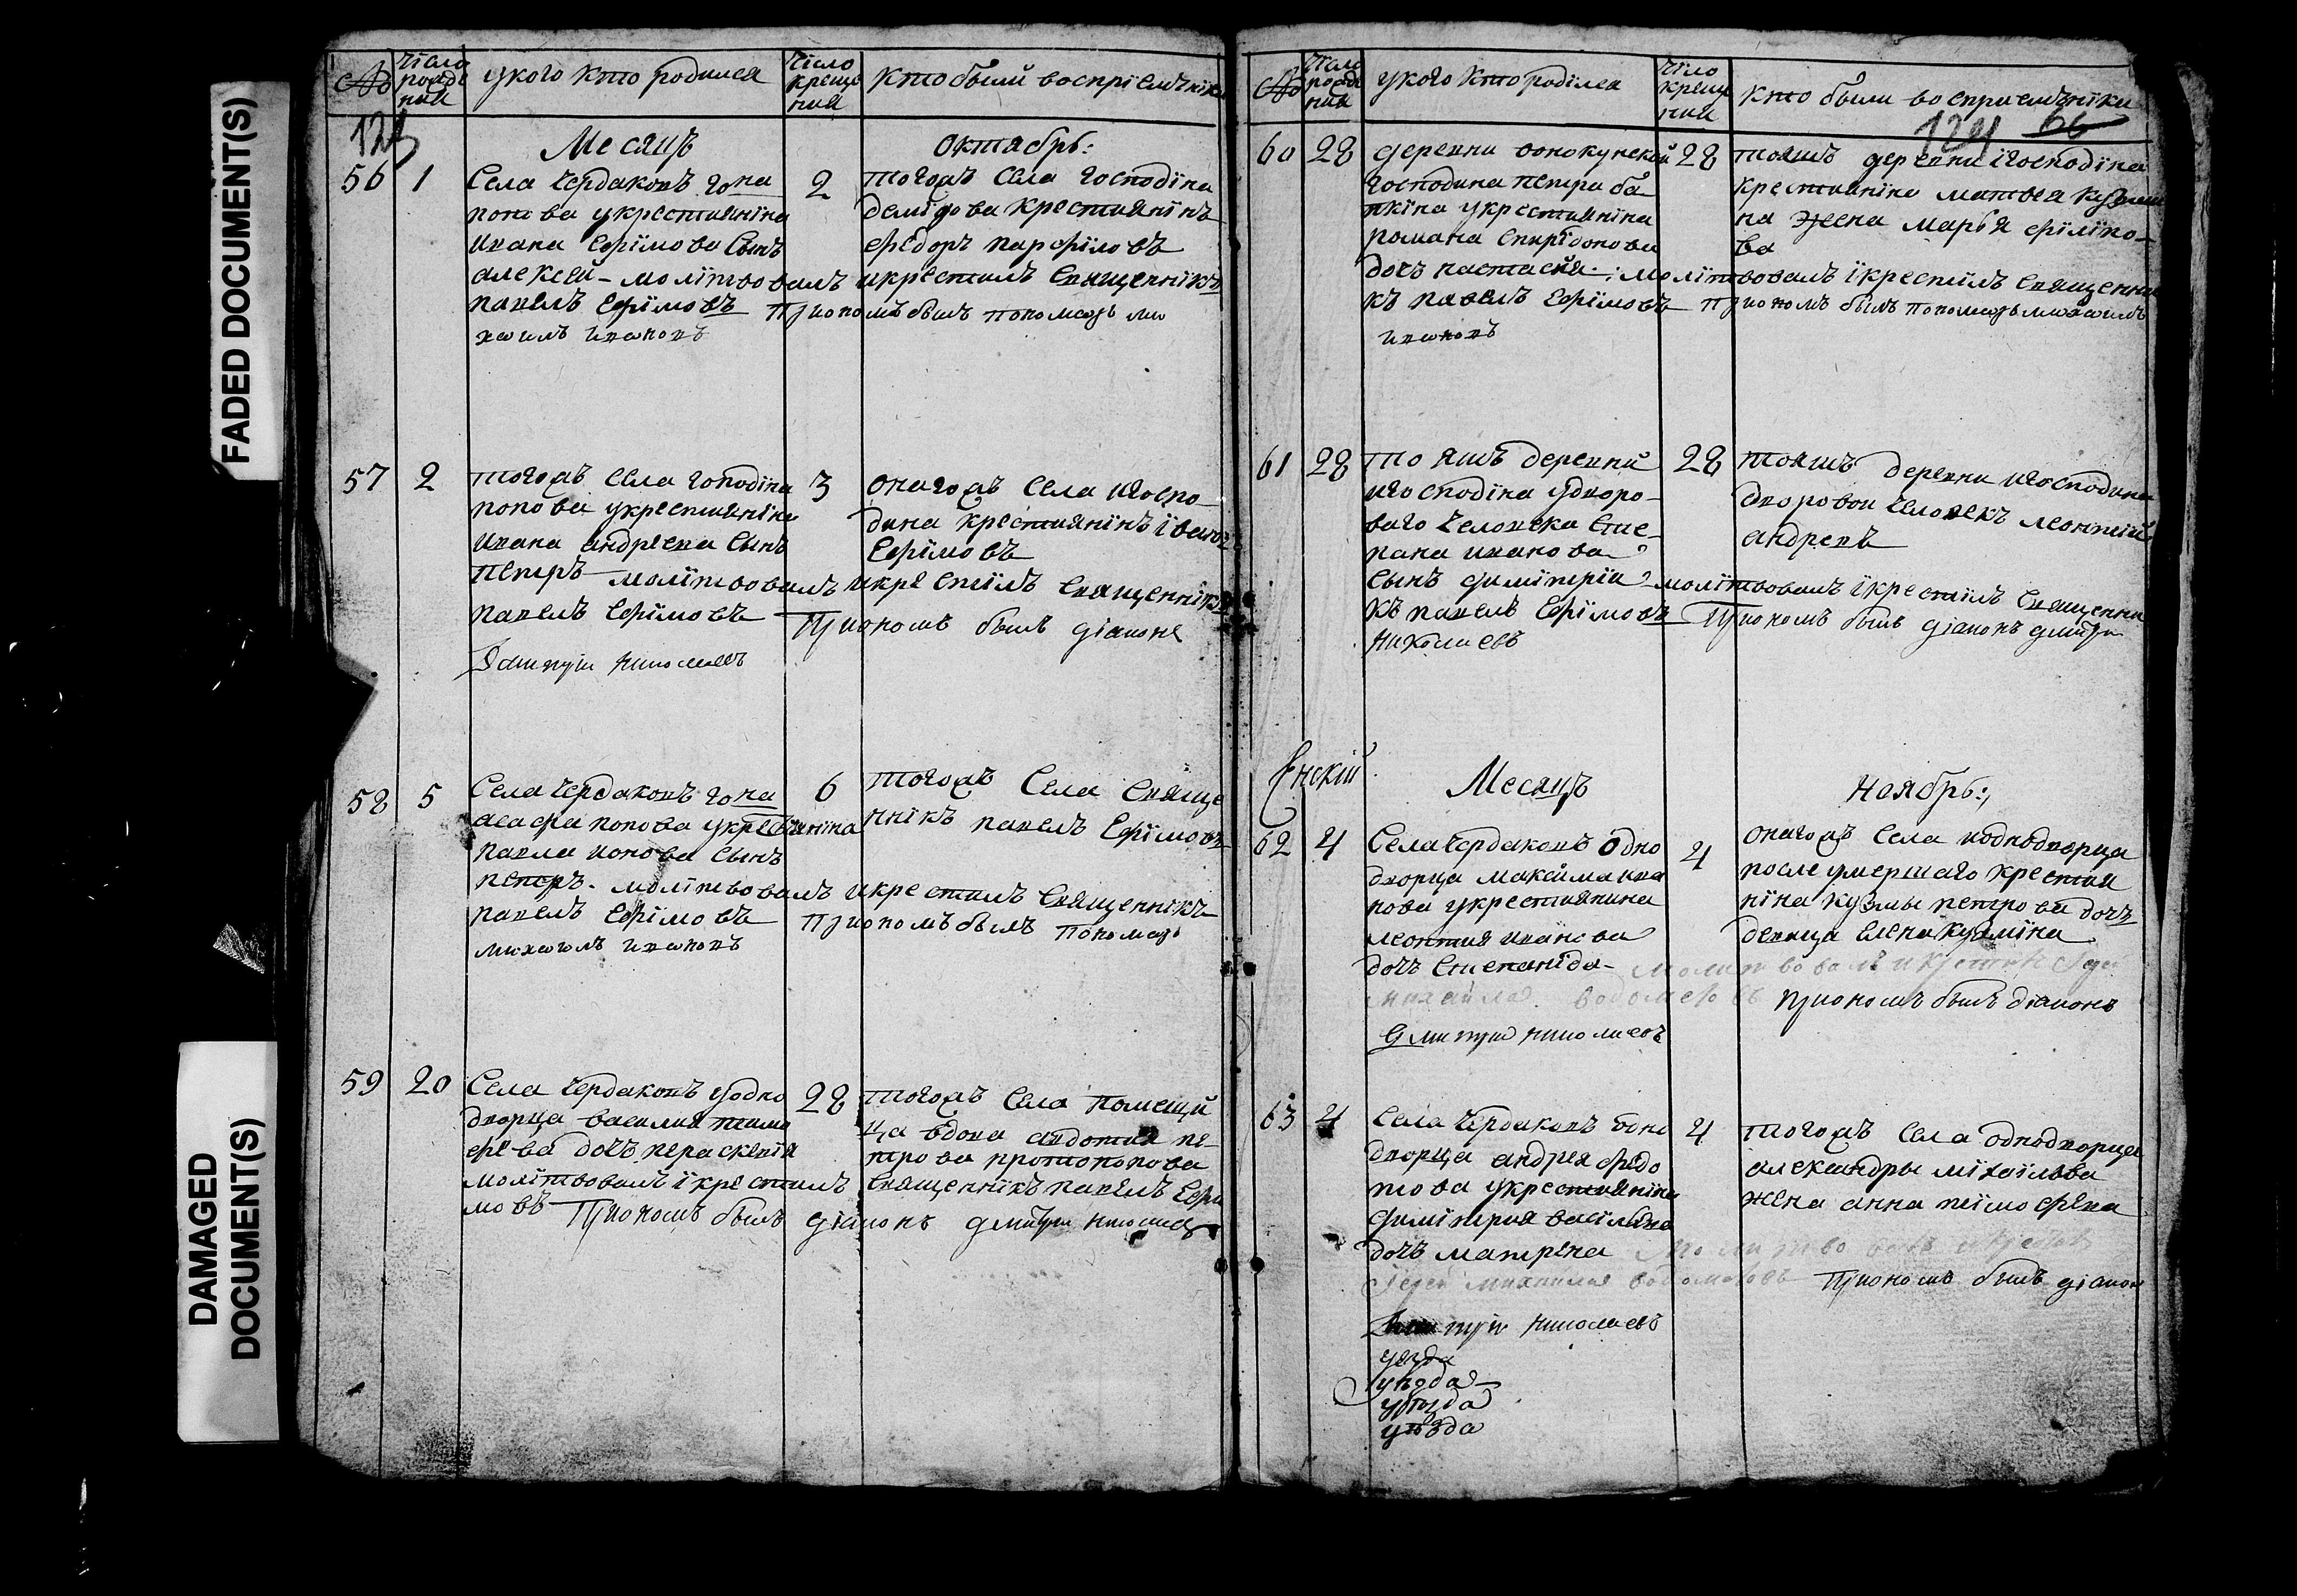 FADED DOCUMENT(S)
DAMAGED
DOCUMENT(S)
№ число рожде ния укого кто родился число креще ния кто были воспрїемъники
Месяцъ октябрь:
56 1
Села чердаковъ гона
попова укрестиянїна
ивана ефїмова сынъ
алексей – молїтвовалъ икрестилъ священнїкъ
павелъ ефїмовъ Приномъ былъ пономарь ми
хаилъ ивановъ
2
тогожъ села господїна
демїдова крестиянїнъ
федоръ парфїловъ
57 2
тогожъ села гоподїна
попова укрестиянїна
ивана андреева сынъ
петръ – молїтвовалъ икрестїлъ священнїкъ
павелъ ефїмовъ Приномъ былъ дїаконъ
Дмитрїи николаевъ
3
онагожъ села игоспо-
дина крестиянїнъ їванъ
ефїмовъ
58 5
Села чердаковъ гона
асафа попова укрестиянїна
павла ионова сынъ
петръ. молїтвовалъ икрестилъ священнїкъ
павелъ ефїмовъ Приномъ былъ пономарь
михаилъ ивановъ
6
тогожъ села свяще
ннїкъ павелъ ефїмовъ
59 20
Села чердаковъ уодно
дворца василия тимо
феева дочъ пераскевїя
молїтвовалъ їкрестилъ священнїкъ павелъ ефи
мовъ Приномъ былъ дїаконъ дмитри николаевъ
28
тогожъ села помещи
ца вдова авдотия пе-
трова протопопова
№ число рожде ния укого кто родїлся число креще ния кто были восприемъники
124 66
60 28
деревни
господина петра ба
пкїна укрестиянїна
романа спирїдонова
дочъ настасия: молїтвовалъ їкрестилъ священни
къ павелъ ефїмовъ Приномъ былъ пономарь михаилъ
ивановъ
28
тояжъ деревни їгосподїна
крестиянїна матвея
на жена марья фїлїпо-
ва
61 28
тояжъ деревни
игосподїна удворо-
ваго человека сте-
пана иванова
сынъ димїтрїи молїтвовалъ їкрестїлъ священни
къ павелъ ефїмовъ Приномъ былъ дїаконъ дмитри
николаевъ
28
тояжъ деревни игосподина
дворовои человекъ леонтїй
андреевъ
Енскїй
Месяцъ Ноябрь:,
62 4
Села чердаковъ одно
дворца максима ива
нова укрестиянина
леонтия иванова
дочъ степанїда – молитвовалъ икрестил Иереи
михаила Приномъ былъ дїаконъ
Дмитрїи николаевъ
4
онагожъ села иоднодворца
после умершаго крестия
нїна кузмы петрова дочъ
девица елена кузмїна
63 4
Села чердаковъ одно
дворца андрея федо
това укрестиянїна
димїтрия васїлиева
дочъ матрена молитвовалъ икрестил
Иереи михаила Приномъ былъ дїакон
Дмитрїи николаевъ
4
тогожъ села однодворца
александры мїхаїлова
жена анна тїмофеева
уезда
уезда
уезда
уезда